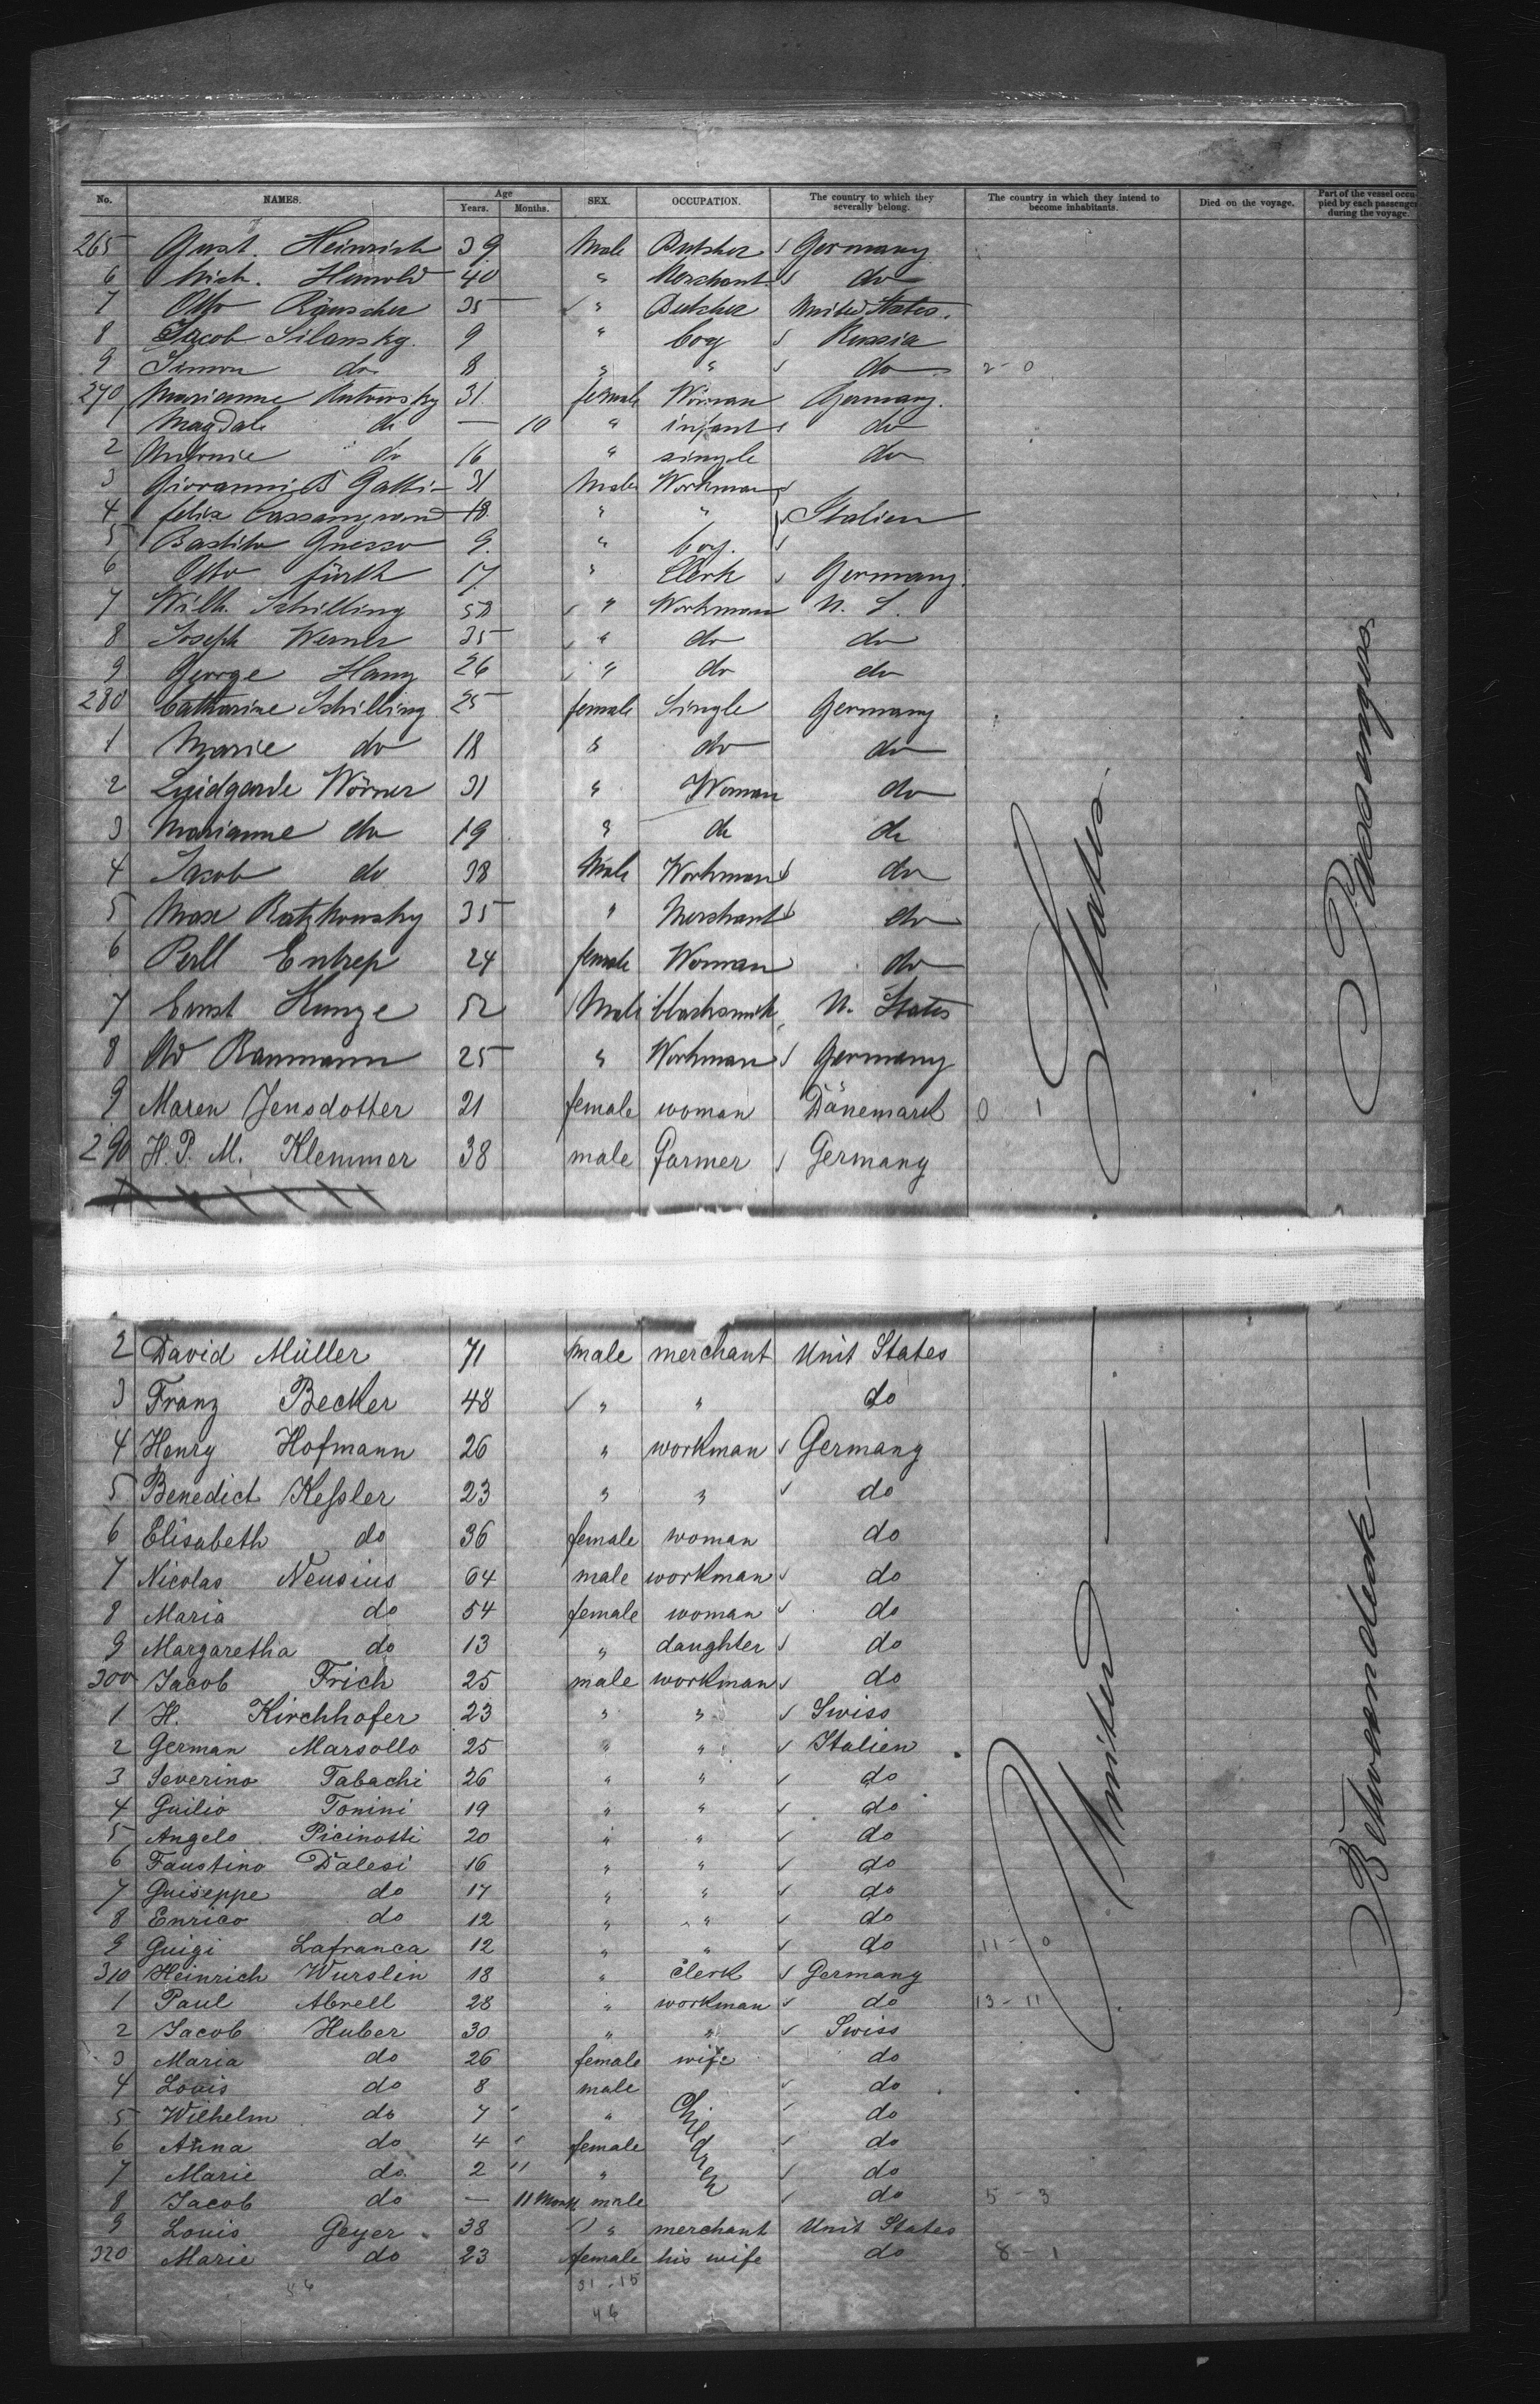 No. NAMES. Age Years. Months. SEX. OCCUPATION. The country to which they severally belong. The country in which they intend to become inhabitants. Died on the voyage. Part of the vessel occupied by each passenger during the voyage.
265 Gust. Heinrich 39 Male Butcher Germany
6 Mich. 40 " Merchant do
7 Otto Räuscher 35 " Butcher United States.
8 Jacob Silansky 9 " boy Russia
9 Simon do 8 " " do 2-0
270 Marianne 31 female Woman Germany.
1 Magdale do — 10 " infant do
2 do 16 " single do
3 Giovanni B Gatti 31 Male Workman
4 felix 18 " " Italien
5 9. " boy.
6 Otto fürth 17 " Clerk Germany.
7 Wilh. Schilling 58 " Workman U. S.
8 Joseph Werner 35 " do do
9 George Hany 26 " do do
280 Catharine Schilling 25 female Single Germany
1 Marie do 18 " do do
2 Luidgarde Wörner 31 " Woman do
3 Marianne do 19 " do do
4 Jacob do 38 Male Workman do
5 Max Ratzkowsky 35 " Merchant do
6 Perll Entrep 24 female Woman do
7 Ernst Kunze 52 Male blacksmith U. States
8 Baumann 25 " Workman Germany
9 Maren Jensdotter 21 female woman Dänemark 0 1
290 H. P. M. Klemmer 38 male farmer Germany
2 David Müller 71 male merchant Unit States
3 Franz Becker 48 " " do
4 Henry Hofmann 26 " workman Germany
5 Benedict Keßler 23 " " do
6 Elisabeth do 36 female woman do
7 Nicolas Neusius 64 male workman do
8 Maria do 54 female woman do
9 Margaretha do 13 " daughter do
300 Jacob Frich 25 male workman do
1 H. Kirchhofer 23 " " Swiss
2 German Marsollo 25 " " Italien
3 Severino Tabachi 26 " " do
4 Guilio Tonini 19 " " do
5 Angelo Picinotti 20 " " do
6 Faustino Dalesi 16 " " do
7 Guiseppe do 17 " " do
8 Enrico do 12 " " do
9 Guigi Lafranca 12 " " do 11-0
310 Heinrich Wurslin 18 " clerk Germany
1 Paul Abrell 28 " workman do 13-11
2 Jacob Huber 30 " " Swiss
3 Maria do 26 female wife do
4 Louis do 8 male do
5 Wilhelm do 7 " do
6 Anna do 4 female do
7 Marie do. 2 " " do
8 Jacob do — 11 Month male do 5-3
9 Louis Geyer 38 " merchant Unit States
320 Marie do 23 female his wife do 8-1
Children
46 31-15
46
United States
Betweendeck Passangers